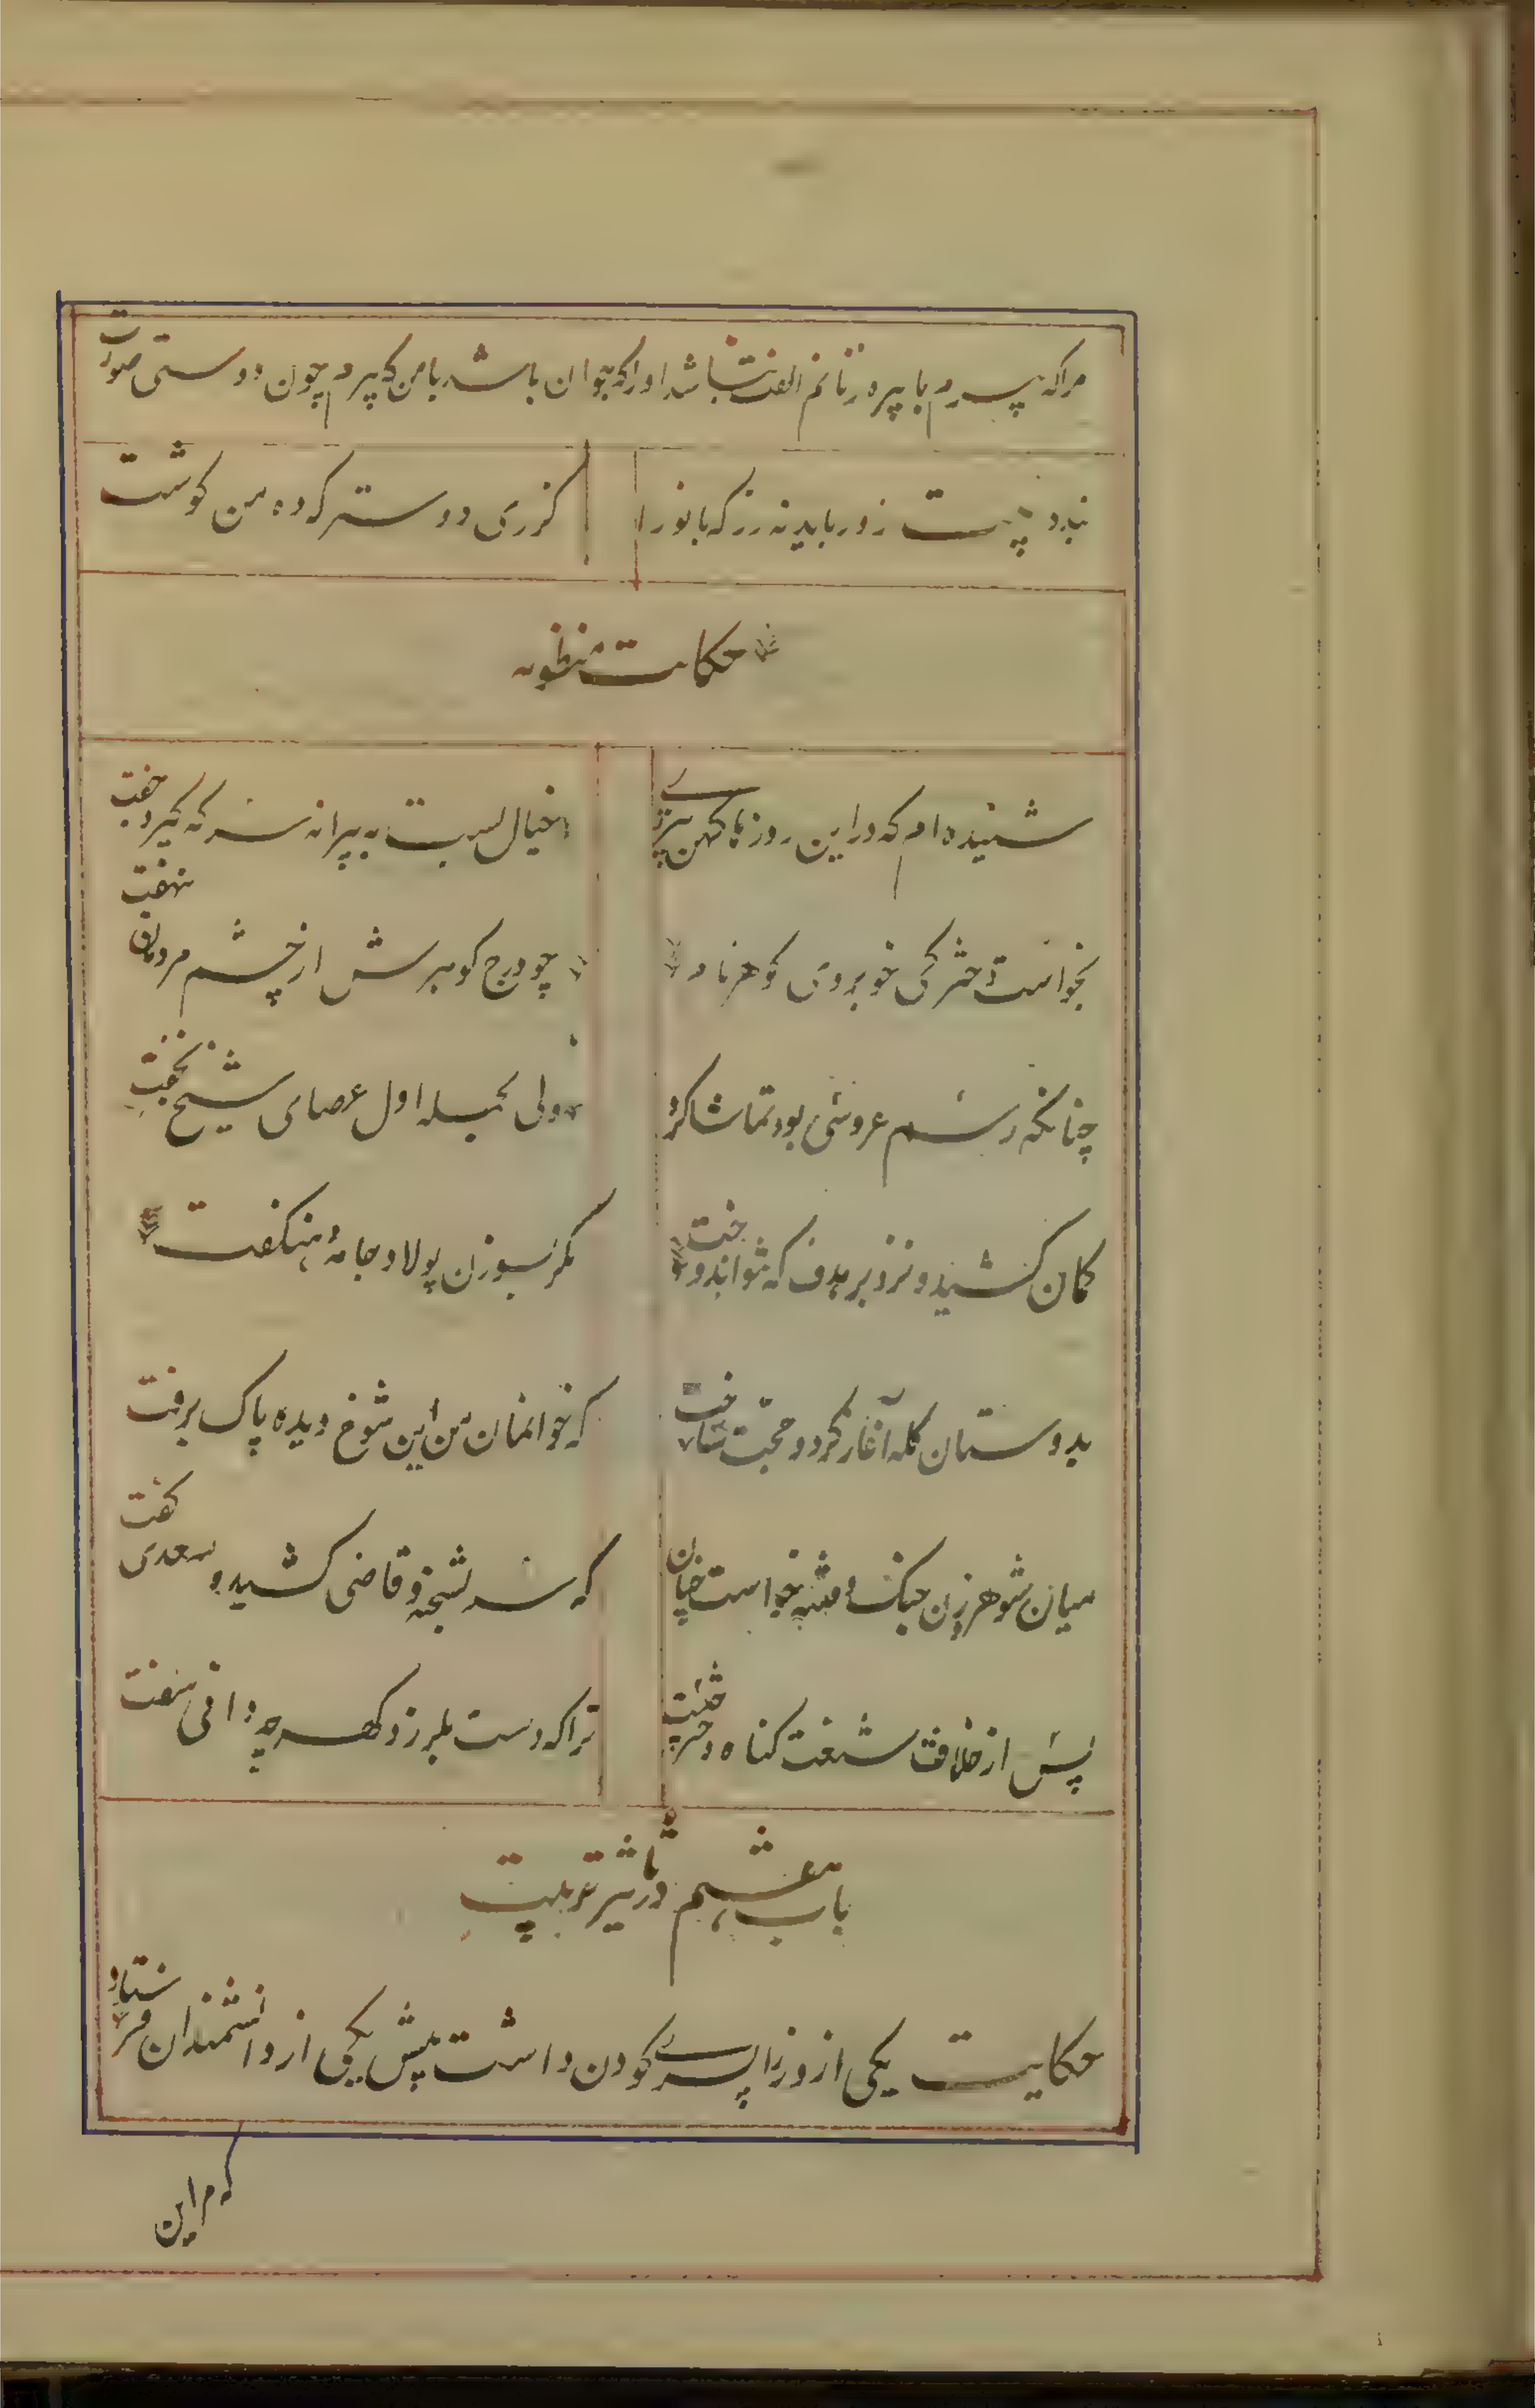 مرا که پیرم با پیره زنانم الفت نباشد او را که جوان باشد با من که پیرم چون دوستی صورت
زور باید نه زر که بانو را گزری دوستر که ده من گوشت
حکایت منظومه
شنیده‌ام که در این روزها کهن پیری خیال بست به پیرانه سر که گیرد جفت
بخواست دخترکی خوبروی گوهر نام چو درج گوهرش از چشم مردمان نهفت
چنانکه رسم عروسی بود تماشا کرد ولی بحمله اول عصای شیخ نخفت
کمان کشید و نزد بر هدف که نتوان دوخت مگر بسوزن پولاد جامهٔ هنگفت
بدوستان گله آغاز کرد و حجت ساخت که خوانمان من این شوخ دیده پاک برفت
میان شوهر زن جنگ و فتنه خواست چنان که سر بشحنه و قاضی کشید و سعدی گفت
پس از خلافت شنعت گناه دختر چیست ترا که دست بلرزد گهر چه دانی سفت
باب هفتم در تأثیر تربیت
حکایت یکی از وزرا پسری کودن داشت پیش یکی از دانشمندان فرستاد
که مر این